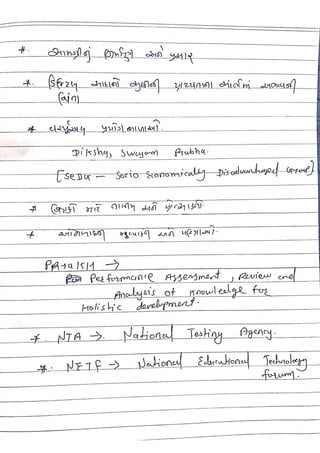 * સામગ્રીનું નિર્માણ અને પ્રસાર
* ડિજિટલ સાધનો
* વર્ચ્યુઅલ પ્રયોગશાળાઓ.
Diksha, Swayam Prabha.
[SEDG – Socio Economically Disadvantaged Group]
* શિક્ષકો માટે તાલીમ અને પ્રોત્સાહનો.
* ઓનલાઇન મૂલ્યાંકન અને પરીક્ષાઓ.
PARAKH →
Performance Assessment, Review and
Analysis of Knowledge for
Holistic development.
* NTA → National Testing Agency.
* NETF → National Educational Technology
forum.